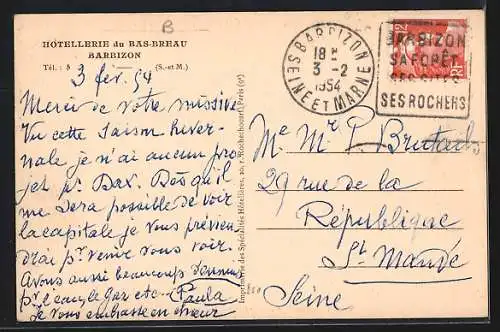 B
HÔTELLERIE du BAS-BREAU
BARBIZON
Tél. : 8 (S.-et M.)
3 fév. 54
Merci de votre missive
Vu cette saison hiver-
nale je n'ai aucun pro
jet pr. Bax. Dès qu'il
me sera possible de voir
la capitale je vous prévien
drai pr venir vous voir.
Avons aussi beaucoup d'ennuis
pr l'eau, le gaz etc. Paula
Je vous embrasse en chœur
Imprimerie des Spécialités Hôtelières, rue Rochechouart, Paris (9e)
BARBIZON
18 H
3 -2
1954
SEINE ET MARNE
BARBIZON
SA FORÊT
SES SITES
SES ROCHERS
RF
Me Mr P. Brutails
29 rue de la
République
St Mandé
Seine